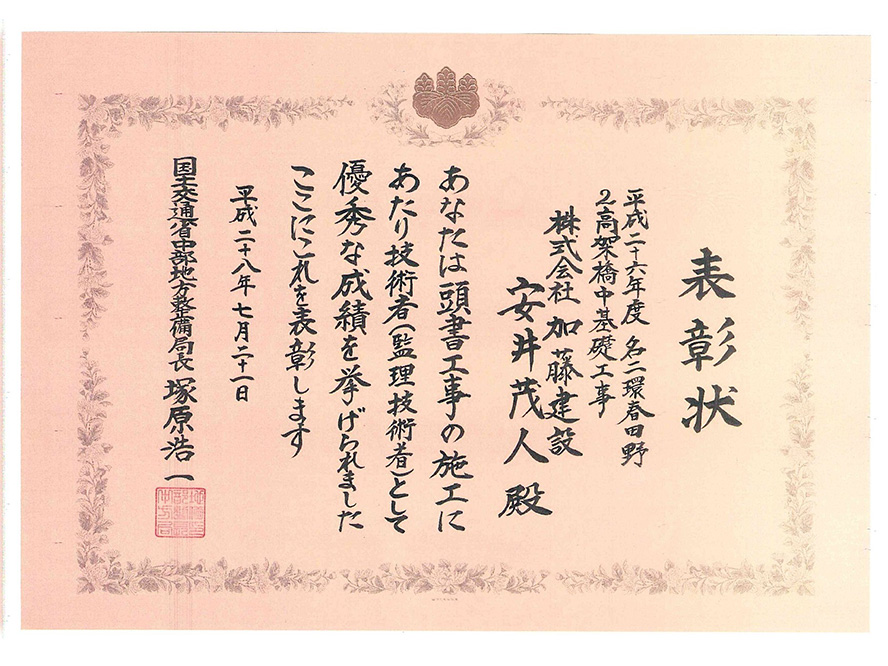 表彰状
平成二十六年度名二環春田野
2高架橋中基礎工事
株式会社加藤建設
安井茂人殿
あなたは頭書工事の施工に
あたり技術者(監理技術者)として
優秀な成績を挙げられました
ここにこれを表彰します
平成二十八年七月二十一日
国土交通省中部地方整備局長 塚原浩一